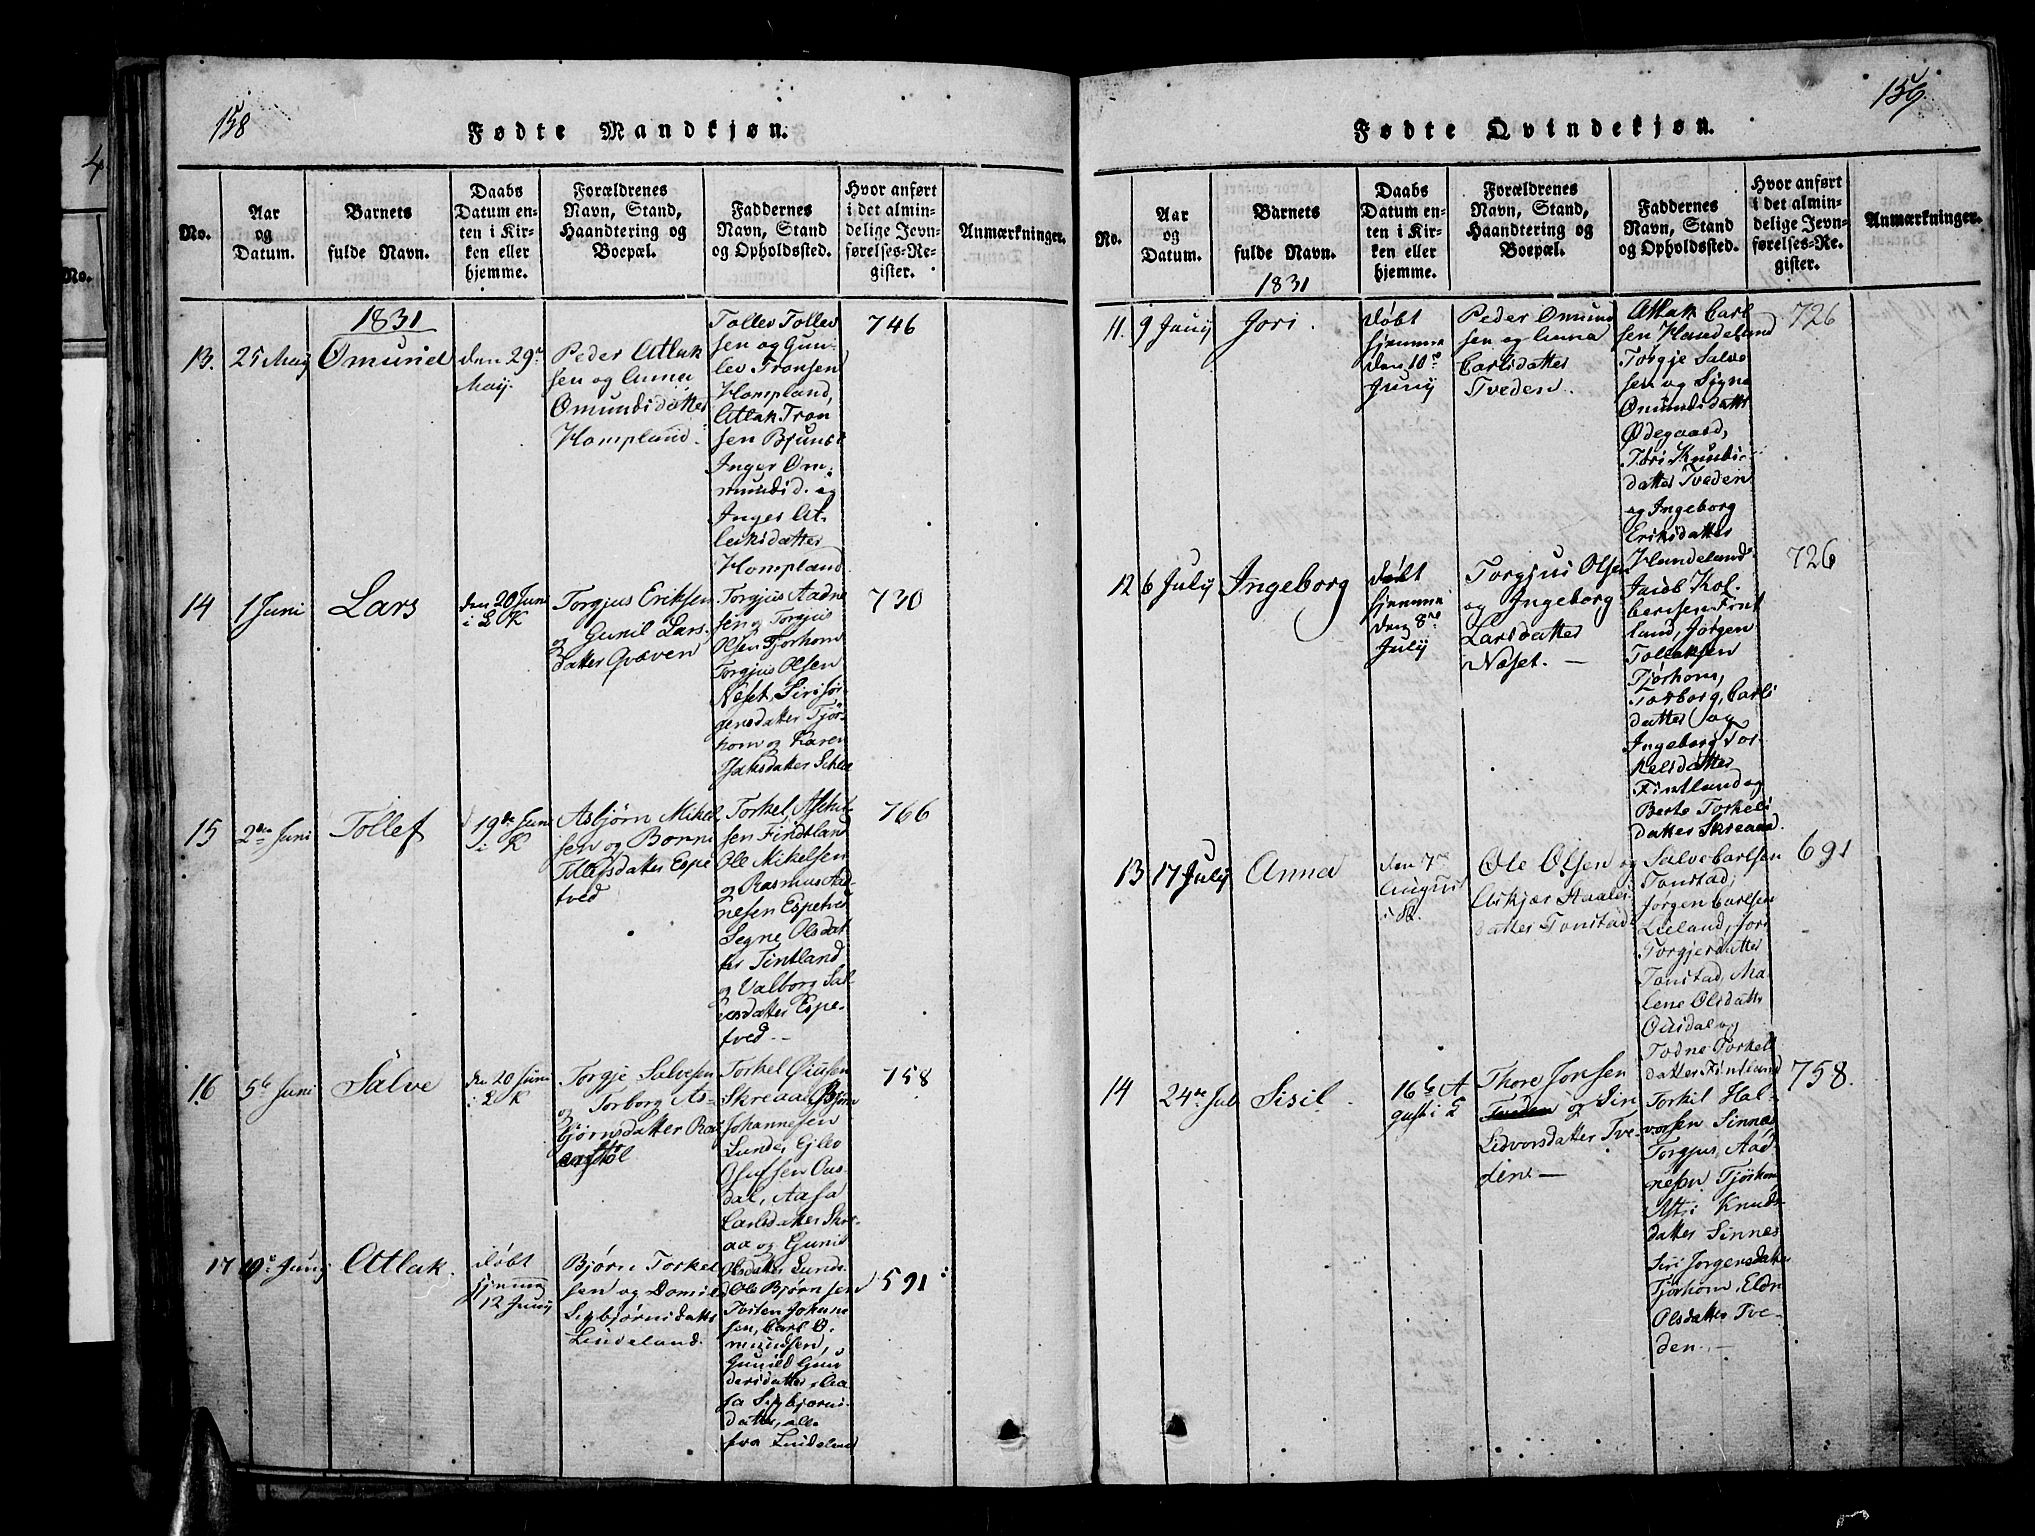 158
Fødte Mandkjøn.
No.
Aar
og
Datum.
Barnets
fulde Navn.
Daabs
Datum en-
ten i Kir-
ken eller
hjemme.
Forældrenes
Navn, Stand,
Haandtering og
Boepæl.
Faddernes
Navn, Stand
og Opholdssted.
Hvor anført
i det almin-
delige Jevn-
førelses-Re-
gister.
Anmærkninger.
1831
13.
25 May
Omund
den 29de
May.
Peder Atlak
sen og Anna
Omundsdatter
Hompland.
Tollev Tollev
sen og Gun-
lev Tronsen
Hompland,
Atlak Tron
sen Bjunes
Inger Om-
mundsd. og
Inger At-
leiksdatter
Hompland.
746
14
1 Juni
Lars
den 20 Juni
i L K
Torgjus Eriksen
og Gunil Lars-
datter Qvæven
Torgjus Aadne
sen og Torgjus
Olsen Tjorhom
Torgjus Olsen
Neset, Siri Jør-
gensdatter Tjør-
hom og Karen
Isaksdatter
730
15
2den Juni
Tollef
19de Juni
i K
Asbjørn Mikel
sen og Bronni
Tollefsdatter Espe
tved
Torkel
sen Findtland
Ole Mikelsen
og Rasmus Aad-
nesen Espetved
Segne Olsdat
ter Tintland
og Valborg Sal-
vesdatter Espe-
tved
766
16
5te Juni
Salve
den 20 Juni
i L K
Torgje Salvesen
og Torborg As-
bjørnsdatter
Torkel
Skreaa, Bjørn
Johannesen
Lunde, Ejlev
Olufsen Ous-
dal, Aasa
Carlsdatter Skre-
aa og Gunil
Olsdatter Lunde
758
17
Juny
Atlak.
døbt
hjemme
12 Juny
Bjørn Torkel
sen og Domil
Sigbjørnsdatter
Lindeland.
Ole Bjørnsen
Torsten Johann
sen, Carl O-
mundsen,
Gunild Gun
dersdatter, Aa-
sa Sigbjørns-
datter, alle
fra Lindeland
591
159.
Fødte Qvindekjøn.
No.
Aar
og
Datum.
Barnets
fulde Navn.
1831
Daabs
Datum en-
ten i Kir-
ken eller
hjemme.
Forældrenes
Navn, Stand,
Haandtering og
Boepæl.
Faddernes
Navn, Stand
og Opholdssted.
Hvor anført
i det almin-
delige Jevn-
førelses-Re-
gister.
Anmærkninger.
11.
9 Juny
Jori.
døbt
hjemme
den 10de
Juny
Peder Omund
sen og Anna
Carlsdatter
Tveden.
Atlak Carl
sen Haudeland
Torgje Salve
sen og Signe
Omundsdatter
Ødegaard,
Jori Knuds-
datter Tveden
og Ingeborg
Eriksdatter
Haudeland
726
12
6 July
Ingeborg
døbt
hjemme
den 8de
July
Torgjus Olsen
og Ingeborg
Larsdatter
Neset. —
Jacob Kol-
bensen Fint
land, Jørgen
Tollaksen
Tjørhom,
Torborg Carls
datter og
Ingeborg Tor-
kelsdatter
Fintland og
Berte Torkels
datter Skreaa.
726
13
17 July
Anna
den 7de
August
i K.
Ole Olsen og
Askjær Staales
datter Tonstad
Salve Carlsen
Tonstad,
Jørgen Carlsen
Lieland, Jori
Torgjersdatter
Tonstad, Ma-
lene Olsdatter
Ousdal og
Todne Torkels
datter Fintland
691
14
24de Jul
Sisil.
16de A
gust i L
Thore Jonsen
Tveden og Siri
Lidvorsdatter Tve-
den —
Torkil Hal-
vorsen Sinnes
Torgjus Aad-
nesen Tjørhom
Astri Knuds-
datter Sinnes
Siri Jørgensdatter
Tjørhom, Eldri
Olsdatter Tve-
den. —
758.
4
No.